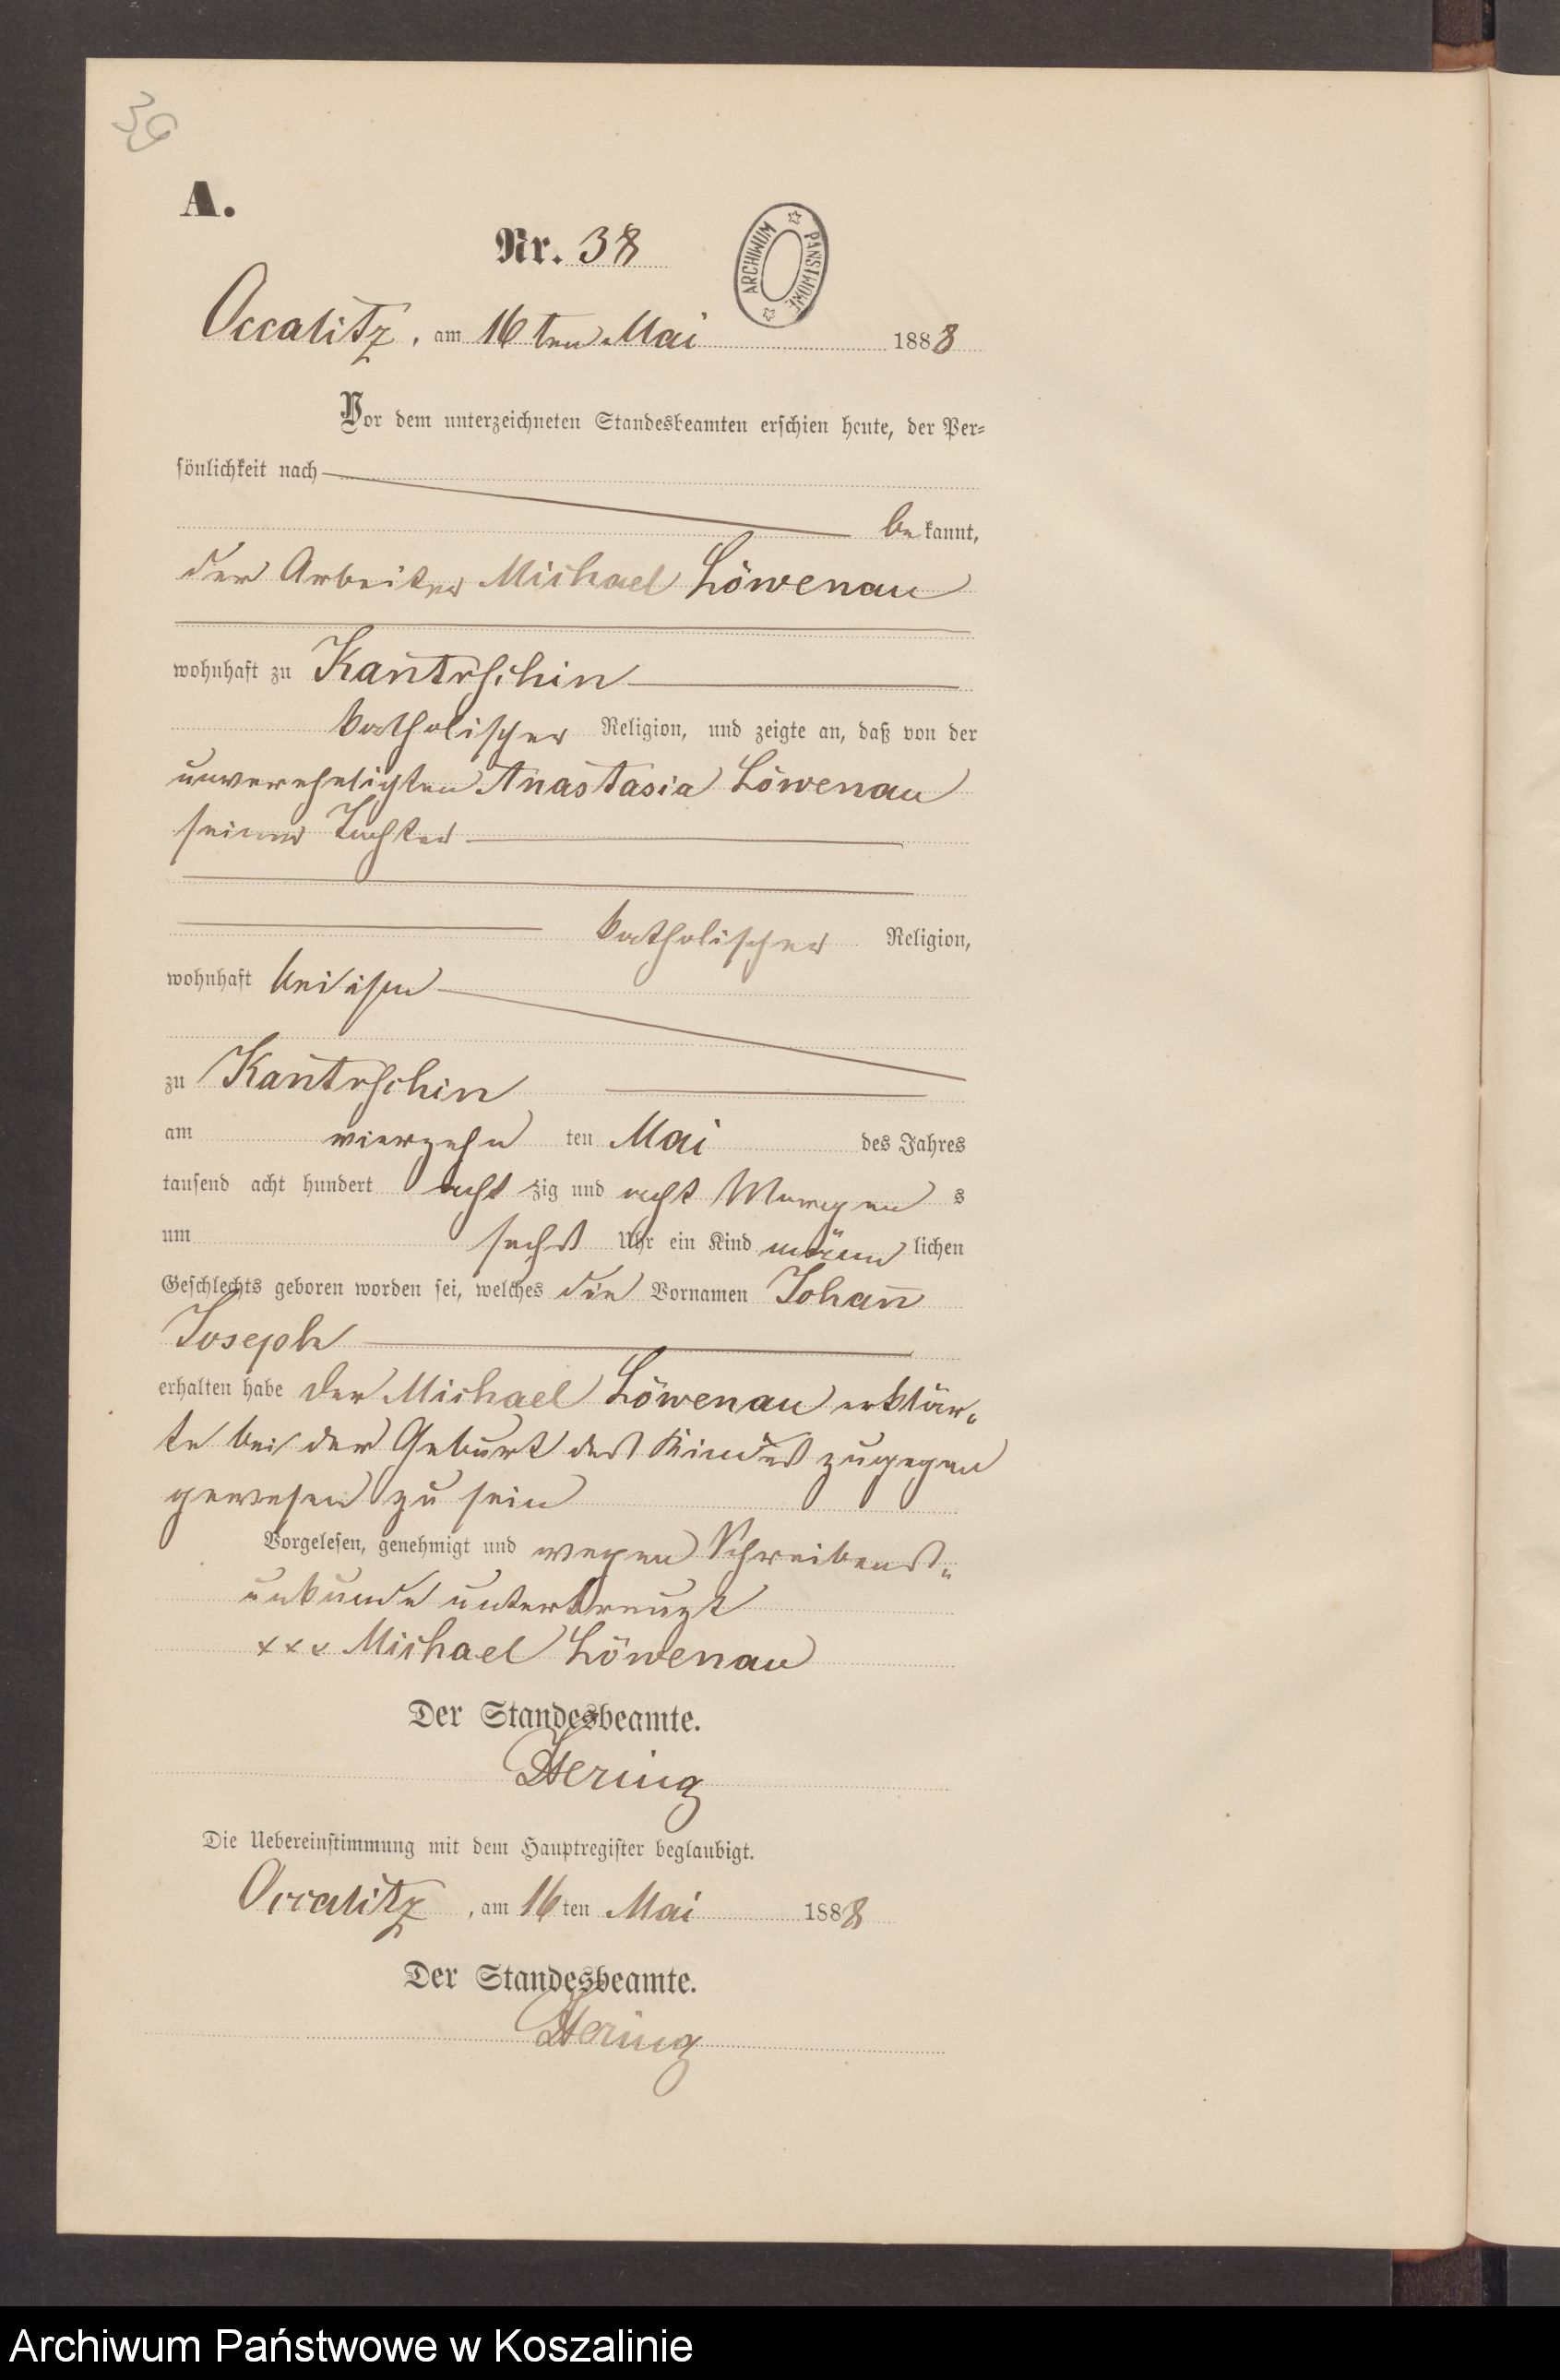 39
A.
Nr. 38
ARCHIWUM PAŃSTWOWE
Occalitz, am 16ten Mai 1888
Vor dem unterzeichneten Standesbeamten erschien heute, der Per-
sönlichkeit nach
be kannt,
der Arbeiter Michael Löwenau
wohnhaft zu Kantrschin
katholischer Religion, und zeigte an, daß von der
unverehelichten Anastasia Löwenau
seiner Tochter
katholischer Religion,
wohnhaft bei ihm
zu Kantrschin
am vierzehn ten Mai des Jahres
tausend acht hundert acht zig und acht Morgen s
um sechs Uhr ein Kind männ lichen
Geschlechts geboren worden sei, welches die Vornamen Johann̄
Joseph
erhalten habe der Michael Löwenau erklär-
te bei der Geburt des Kindes zugegen
gewesen zu sein
Vorgelesen, genehmigt und wegen Schreibens-
unkunde unterkreuzt
xxx Michael Löwenau
Der Standesbeamte.
Hering
Die Uebereinstimmung mit dem Hauptregister beglaubigt.
Occalitz, am 16ten Mai 1888
Der Standesbeamte.
Hering
Archiwum Państwowe w Koszalinie